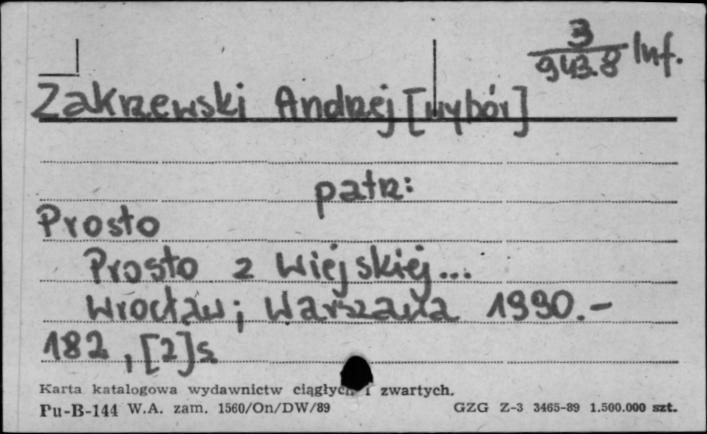 3
943.8 Inf.
Zakrzewski Andrzej [wybór]
patrz:
Prosto
Prosto z Wiejskiej...
Wrocław; Warszawa 1990.-
182, [2]s
Karta katalogowa wydawnictw ciągłych i zwartych.
Pu-B-144 W.A. zam. 1560/On/DW/89 GZG Z-3 3465-89 1.500.000 szt.